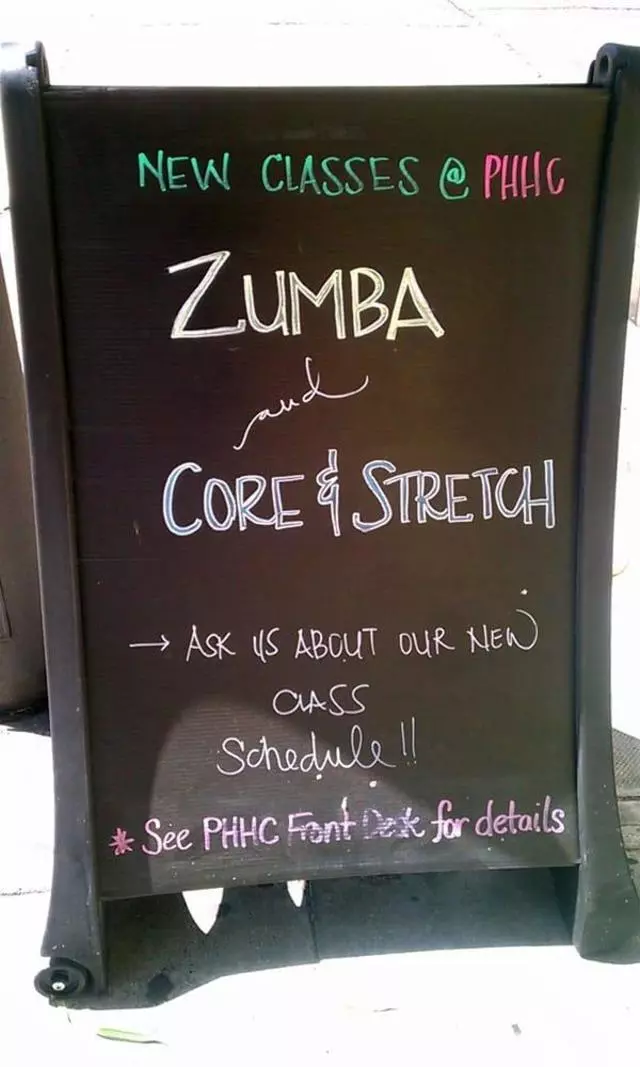 NEW CLASSES @ PHHC
ZUMBA
and
CORE & STRETCH
→ ASK US ABOUT OUR NEW
CLASS
Schedule!!
* See PHHC Front Desk for details